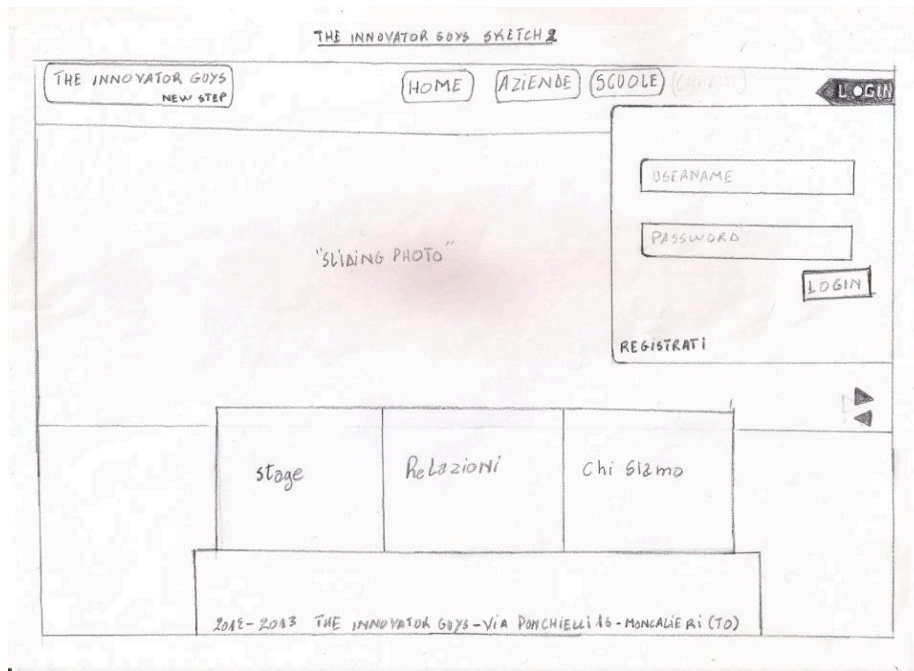 THE INNOVATOR GUYS SKETCH 2
THE INNOVATOR GUYS
NEW STEP
HOME AZIENDE SCUOLE
LOGIN
USERNAME
PASSWORD
LOGIN
REGISTRATI
"SLIDING PHOTO"
Stage Relazioni Chi Siamo
2012-2013 THE INNOVATOR GUYS-VIA PONCHIELLI 16-MONCALIERI (TO)